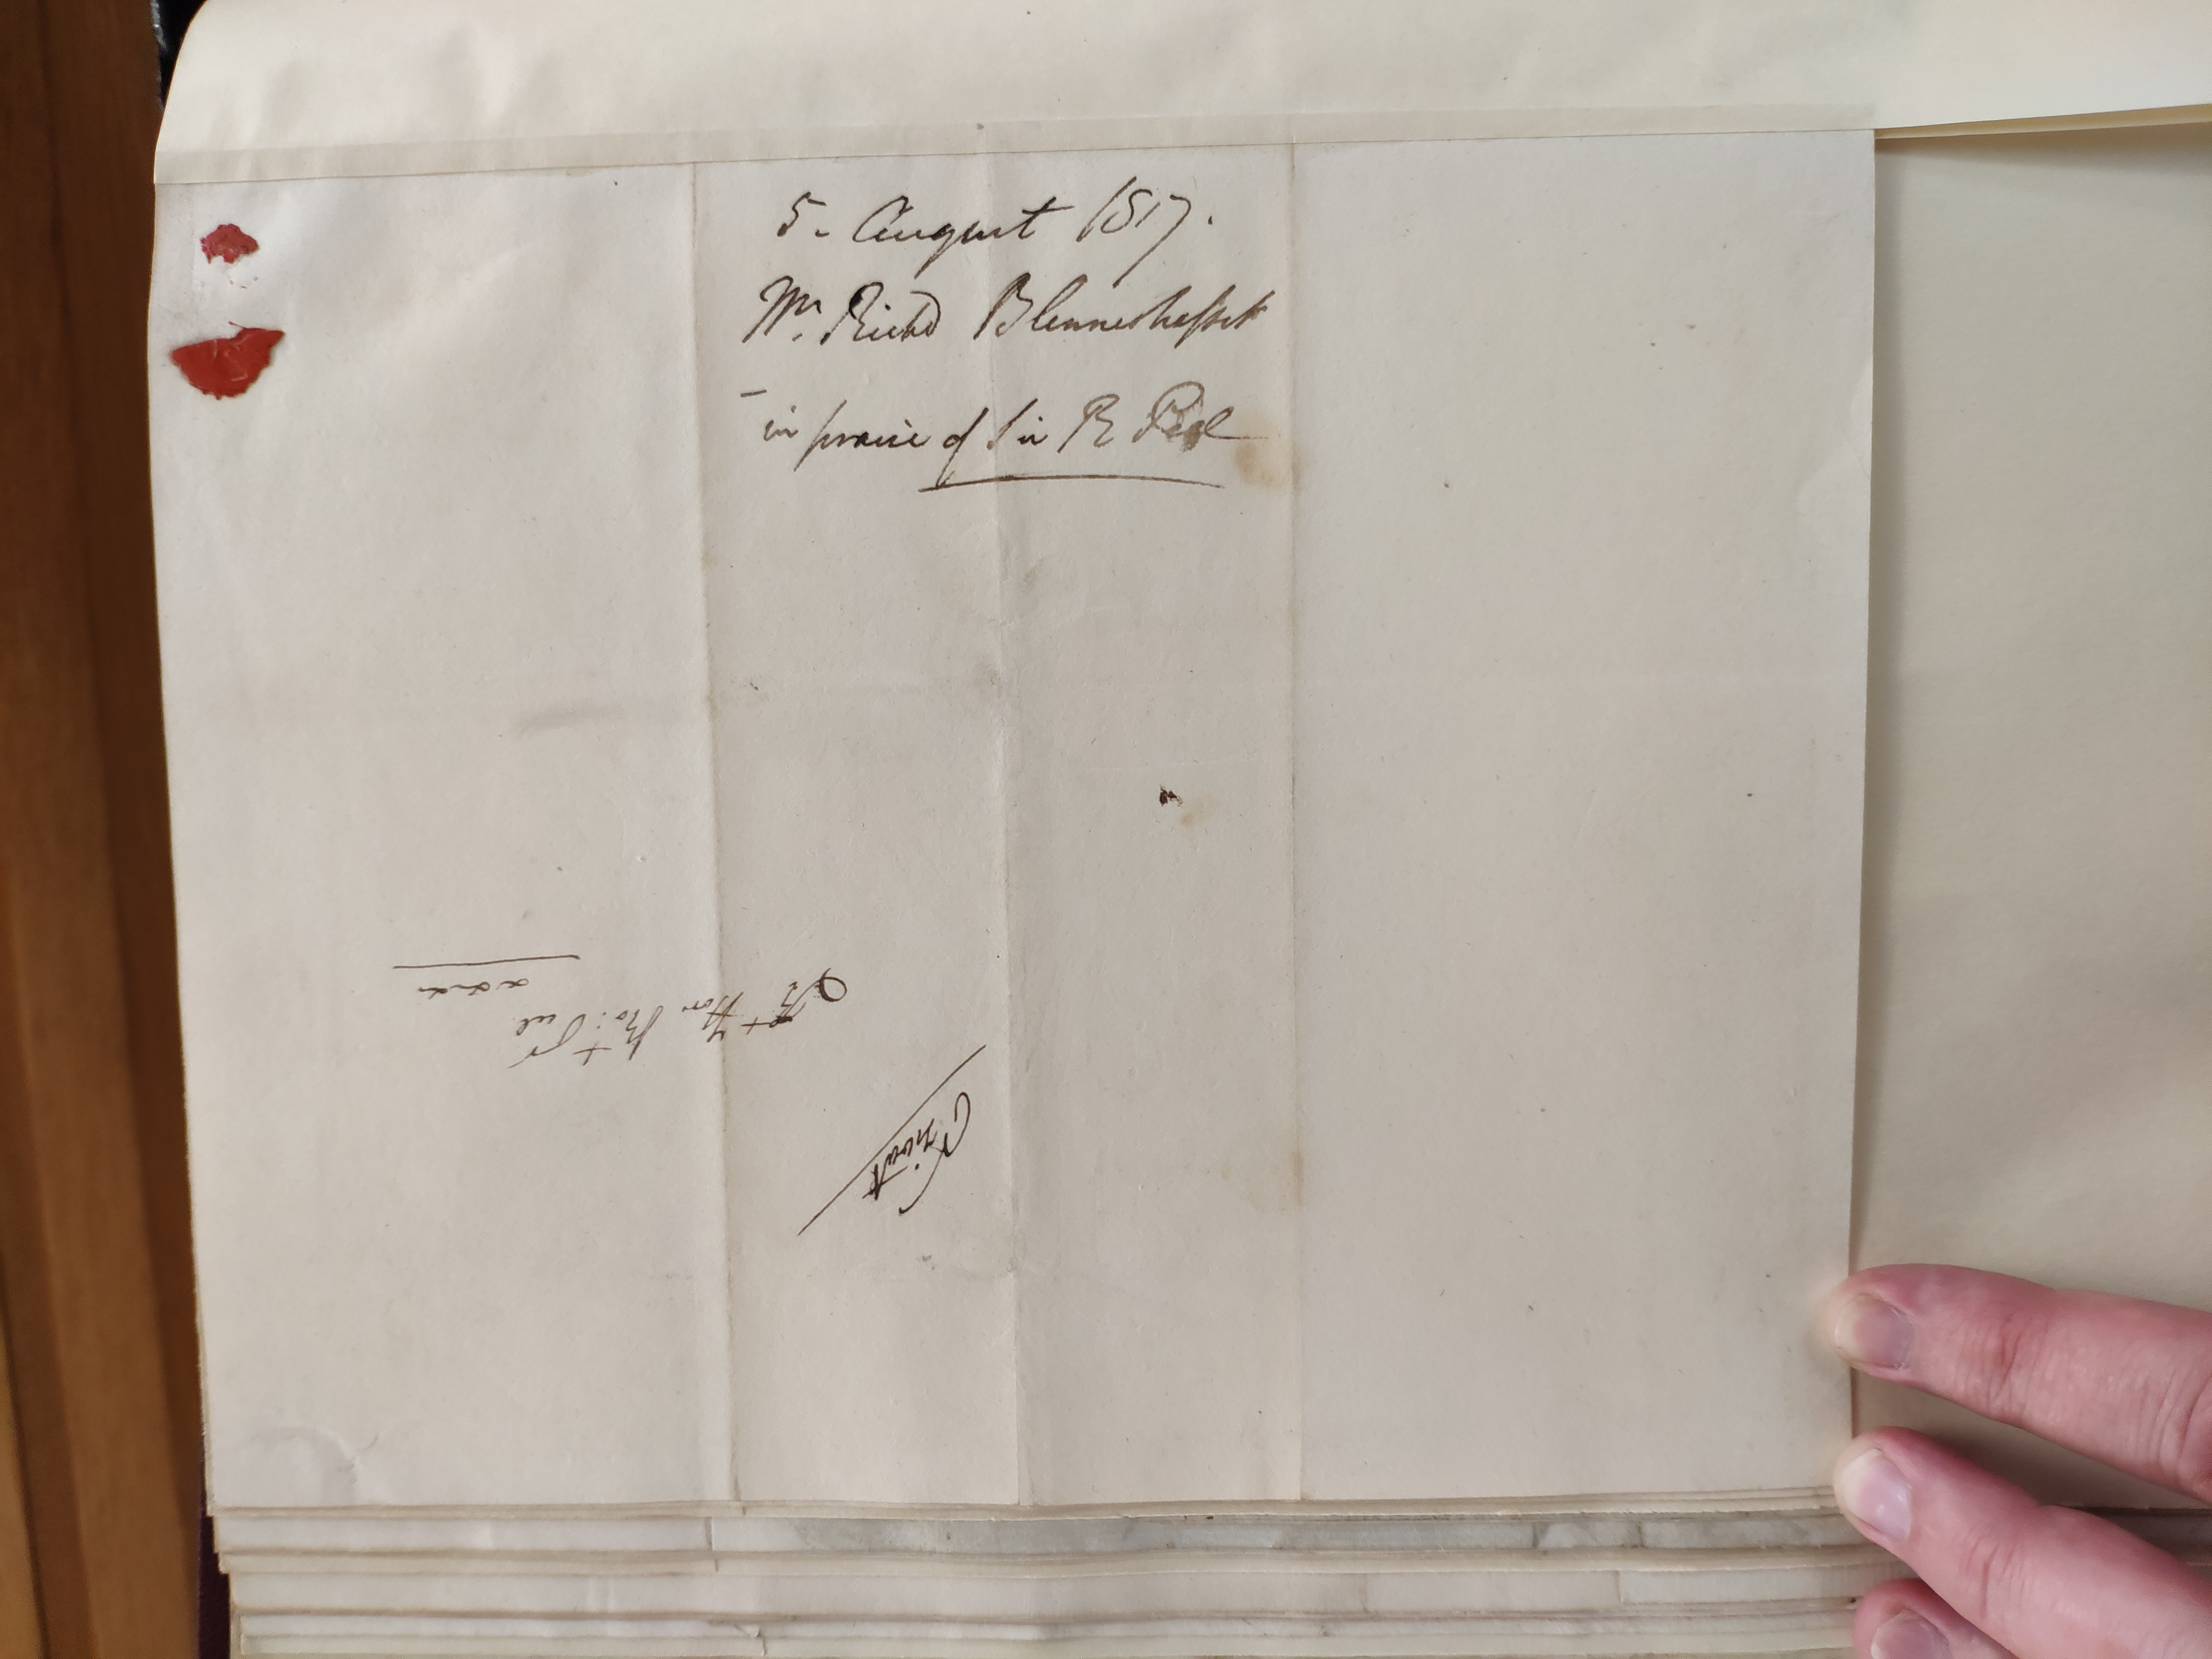 5. August 1817.
Mr. Richd Blennerhassett
– in praise of Sir R Peel
Rt Hon Robt Peel
&c &c &c
Private